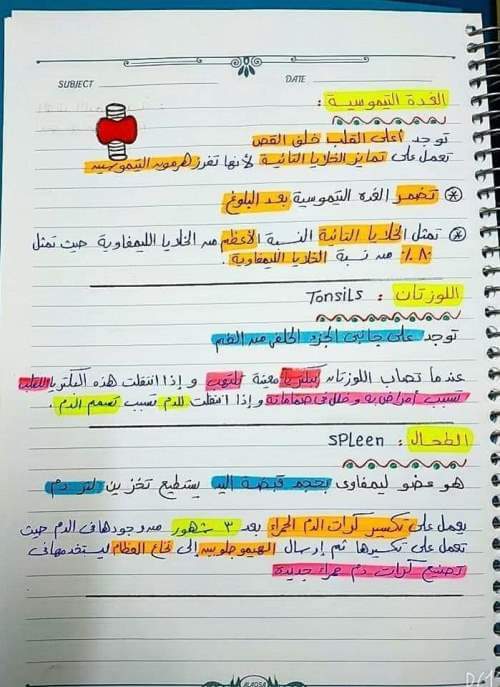 SUBJECT DATE
الغدة التيموسية :
توجد أعلى القلب خلف القص
تعمل على تمايز الخلايا التائية لأنها تفرز هرمون التيموسين
* تضمر الغدة التيموسية بعد البلوغ
* تمثل الخلايا التائية النسبة الأعظم من الخلايا الليمفاوية حيث تمثل
٨٠٪ من نسبة الخلايا الليمفاوية .
اللوزتان : Tonsils
توجد على جانبي الجزء الخلفي من الفم
عندما تصاب اللوزتان بكتريا معينة تلتهب وإذا انتقلت هذه البكتريا للقلب
تسبب أمراض به وخلل في صماماته وإذا انتقلت للدم تسبب تسمم الدم .
الطحال : Spleen
هو عضو ليمفاوى بحجم قبضة اليد يستطيع تخزين لتر دم
يعمل على تكسير كرات الدم الحمراء بعد ٣ شهور من وجودها في الدم حيث
تعمل على تكسيرها ثم إرسال الهيموجلوبين إلى نخاع العظام ليستخدمها في
تصنيع كرات دم حمراء جديدة
ALAQSA